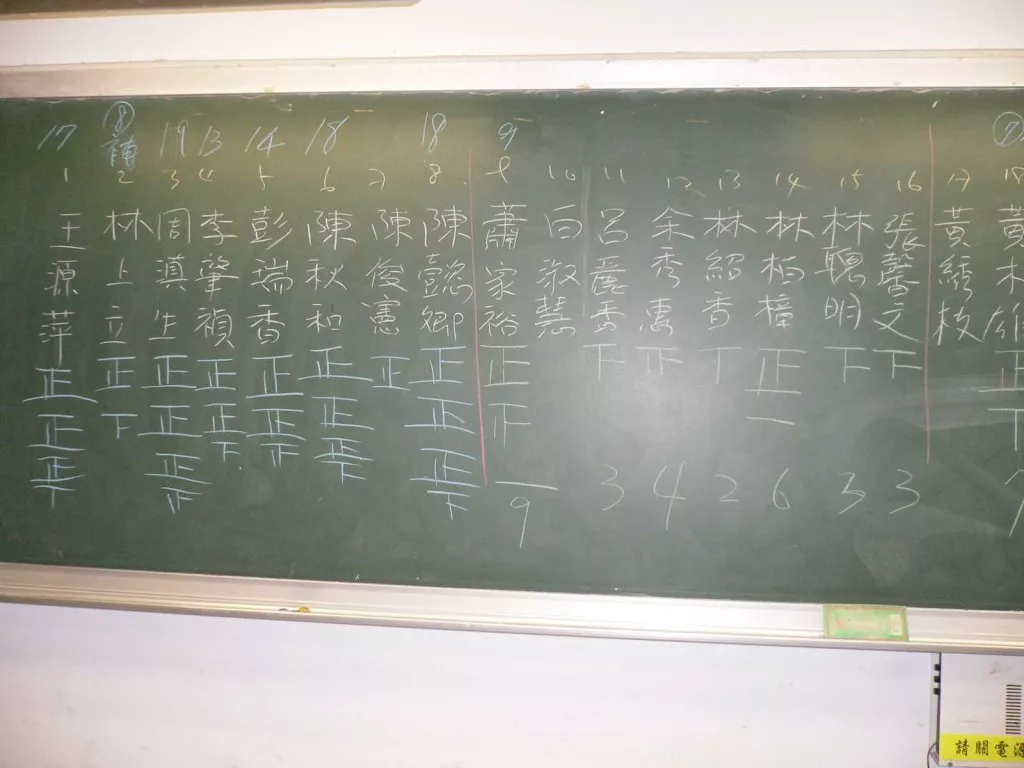 17 ⑧補 19 13 14 18 18 9 ⑦
1 2 3 4 5 6 7 8 9 10 11 12 13 14 15 16 17 18
王源萍
林上立
周滇生
李肇禎
彭瑞香
陳秋和
陳俊憲
陳懿卿
蕭家裕
白淑慧
呂麗香
余秀惠
林紹香
林柏樟
林聰明
張馨文
黃綉枝
黃木雄
正正正丅
正下
正正正正
正正下
正正正
正正正下
正
正正正下
正正
下
正
丅
正一
下
下
正丅
9 3 4 2 6 3 3
請關電源